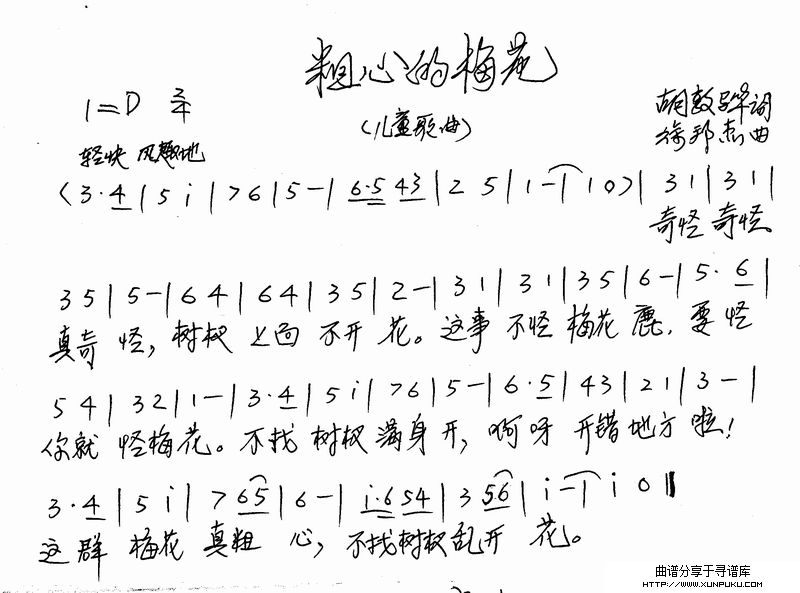 粗心的梅花
1=D 2/4
(儿童歌曲)
胡敦骅词
徐邦杰曲
轻快 风趣地
(3·4|5 i|7 6|5-|6·5 43|2 5|1-|1 0)|3 1|3 1|
奇怪 奇怪
3 5|5-|6 4|6 4|3 5|2-|3 1|3 1|3 5|6-|5·6|
真奇 怪,树杈 上面 不开 花。这事 不怪 梅花 鹿,要怪
5 4|3 2|1-|3·4|5 i|7 6|5-|6·5|4 3|2 1|3-|
你就 怪梅花。不找 树杈 满身 开,啊呀 开错 地方 啦!
3·4|5 i|7 65|6-|i·6 54|3 56|i-|i 0‖
这群 梅花 真粗 心,不找树杈乱开 花。
曲谱分享于寻谱库
HTTP://WWW.XUNPUKU.COM